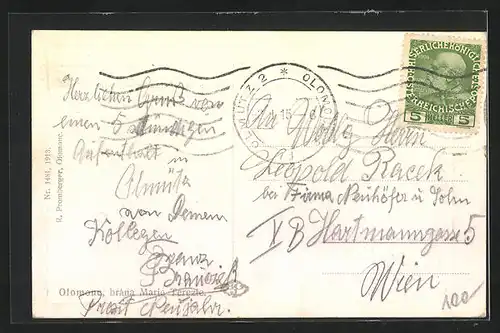 Herzlichen Gruß von
einem 5 stündigen
Aufenthalt in
Olmütz
von Deinem
Kollegen
Franz
Olomouc, brána Marie Terezie.
Nr. 1481, 1913.
R. Promberger, Olomouc.
OLMÜTZ 2 * OLOMOUC
15
KAISERLICHEKÖNIGLICHE
ÖSTERREICHISCHE POST
5 5
An Wohlg. Herrn
Leopold Racek
bei Firma Neuhöfer u Sohn
V B Hartmanngasse 5
Wien
100